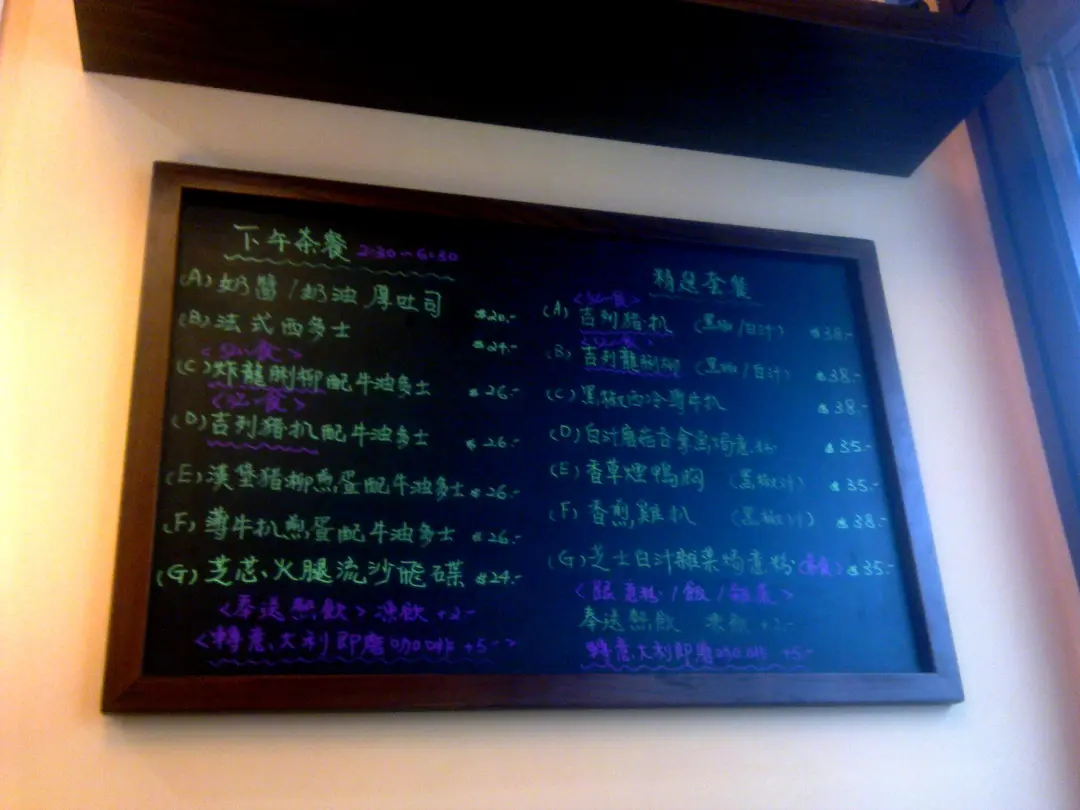 下午茶餐 2:30~6:30
(A) 奶醬/奶油厚吐司 $20.-
(B) 法式西多士 $24.-
<必食>
(C) 炸龍脷柳配牛油多士 $26.-
<必食>
(D) 吉列猪扒配牛油多士 $26.-
(E) 漢堡猪柳煎蛋配牛油多士 $26.-
(F) 薄牛扒煎蛋配牛油多士 $26.-
(G) 芝芯、火腿流沙飛碟 $24.-
<奉送熱飲> 凍飲+2.-
<轉意大利即磨咖啡 +5.->
精選套餐
(A) 吉列猪扒 (黑椒/白汁) $38.-
(B) 吉列龍脷柳 (黑椒/白汁) $38.-
(C) 黑椒西冷薄牛扒 $38.-
(D) 白汁磨菇吞拿魚焗意粉 $35.-
(E) 香草煙鴨胸 (黑椒汁) $35.-
(F) 香煎雞扒 (黑椒汁) $38.-
(G) 芝士白汁雜菜焗意粉 $35.-
<跟意粉/飯/>
奉送熱飲 凍飲+2.-
轉意大利即磨咖啡 +5.-